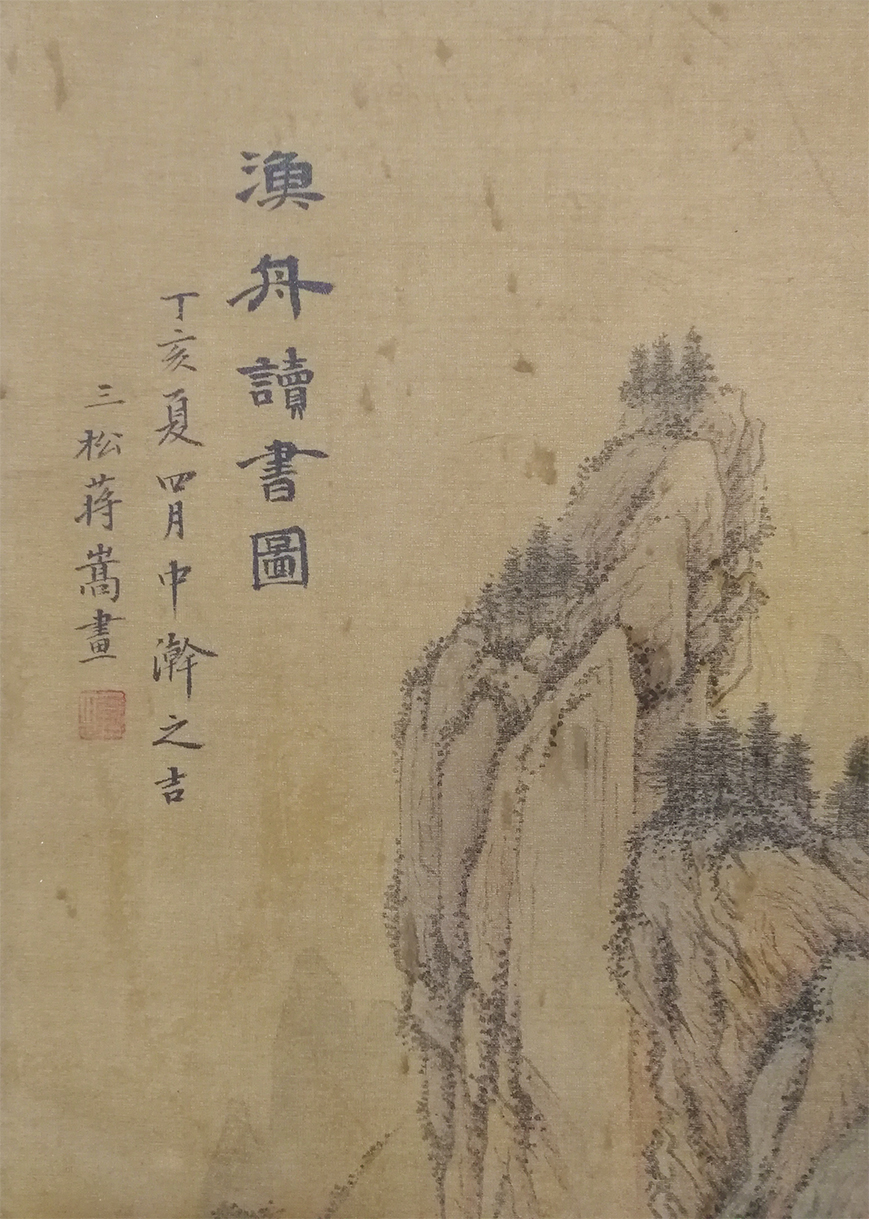 漁舟讀書圖
丁亥夏四月中澣之吉
三松蔣嵩畫